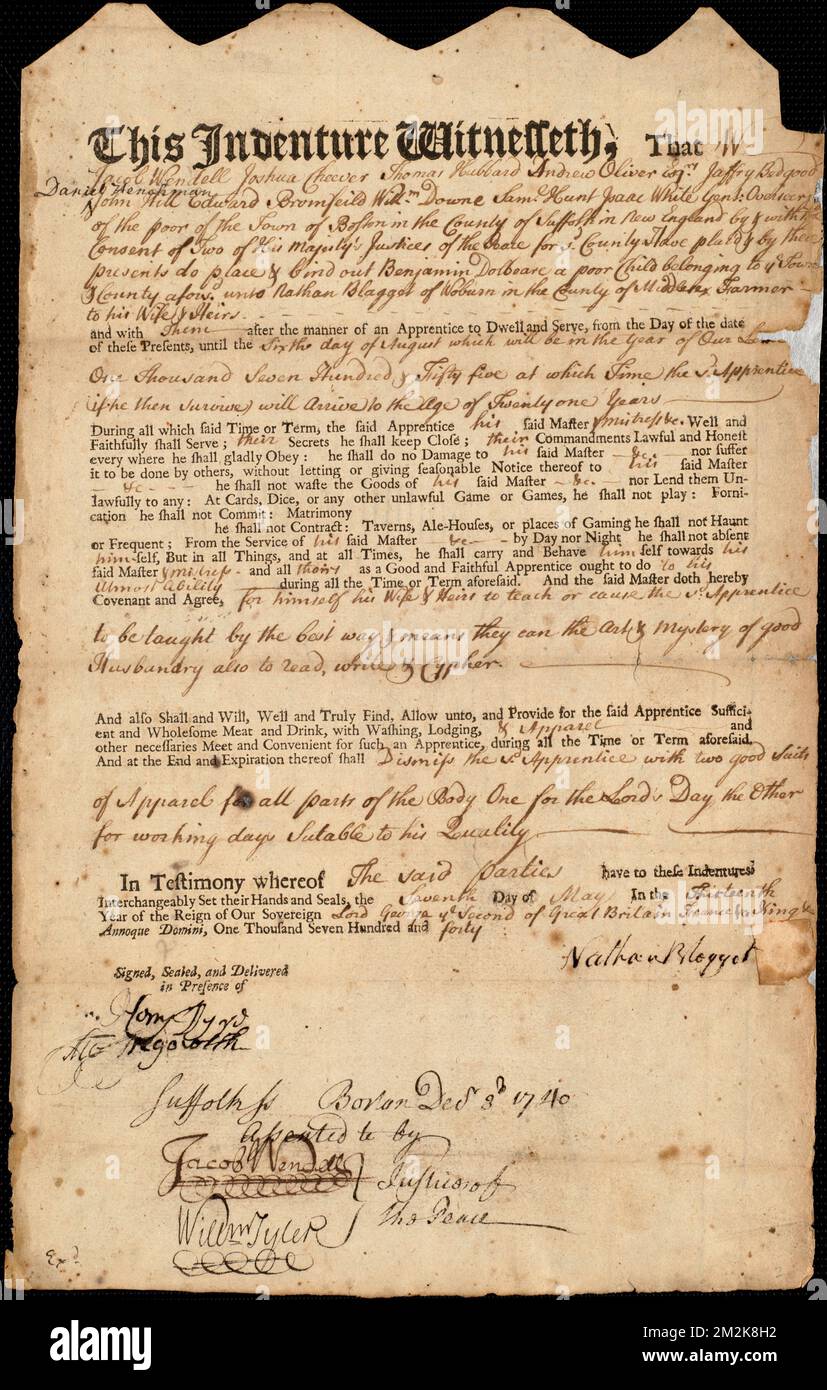 This Indenture Witnesseth, That W
Jacob Wendell Joshua Cheever Thomas Hubbard Andrew Oliver Esqrs Jaffry Bedgood
Daniel Henchman
John Hill Edward Bromfeild Willm Downe Saml Hunt Isaac White Gent: Overseers
of the poor of the Town of Boston in the County of Suffolk in New England by & with the
Consent of Two of His Majesty's Justices of the Peace for sd County Have placd & by these
presents do place & bind out Benjamin Dolbeare a poor Child belonging to ye Town
& County aforsd unto Nathan Blagget of Woburn in the County of Middlesex Farmer
to his Wife & Heirs
and with Them after the manner of an Apprentice to Dwell and Serve, from the Day of the date
of these Presents, until the Sixth day of August which will be in the Year of Our
One Thousand Seven Hundred & Fifty five at which Time the sd Apprentice
(if he then survive) will Arrive to the Age of Twenty one Years
During all which said Time or Term, the said Apprentice his said Master & mistress &c. Well and
Faithfully shall Serve; their Secrets he shall keep Close; their Commandments Lawful and Honest
every where he shall gladly Obey: he shall do no Damage to his said Master &c. nor suffer
it to be done by others, without letting or giving seasonable Notice thereof to his said Master
&c he shall not waste the Goods of his said Master &c. nor Lend them Un-
lawfully to any: At Cards, Dice, or any other unlawful Game or Games, he shall not play: Forni-
cation he shall not Commit: Matrimony
he shall not Contract: Taverns, Ale-Houses, or places of Gaming he shall not Haunt
or Frequent; From the Service of his said Master &c by Day nor Night he shall not absent
him self, But in all Things, and at all Times, he shall carry and Behave him self towards his
said Master & mistress and all theirs as a Good and Faithful Apprentice ought to do to his
Utmost Ability during all the Time or Term aforesaid. And the said Master doth hereby
Covenant and Agree, for himself his Wife & Heirs to teach or cause the sd Apprentice
to be taught by the best way & means they can the Art & Mystery of good
Husbandry also to read, write & Cypher.
And also Shall and Will, Well and Truly Find, Allow unto, and Provide for the said Apprentice Suffici-
ent and Wholesome Meat and Drink, with Washing, Lodging, & Apparel and
other necessaries Meet and Convenient for such an Apprentice, during all the Time or Term aforesaid.
And at the End and Expiration thereof shall Dismiss the sd Apprentice with two good Suits
of Apparel for all parts of the Body One for the Lord's Day the Other
for working days Sutable to his Quality
In Testimony whereof The said parties have to these Indentures
Interchangeably Set their Hands and Seals, the Seventh Day of May In the Thirteenth
Year of the Reign of Our Sovereign Lord George ye Second of Great Britain France &c King &c
Annoque Domini, One Thousand Seven Hundred and forty
Nathan Blogget
Signed, Sealed, and Delivered
in Presence of
Suffolk ss Boston Decr 8th 1740
Assented to by
Jacob Wendell
Justices of
Willm Tyler
the Peace
Exd
alamy
Image ID: 2M2K8H2
www.alamy.com